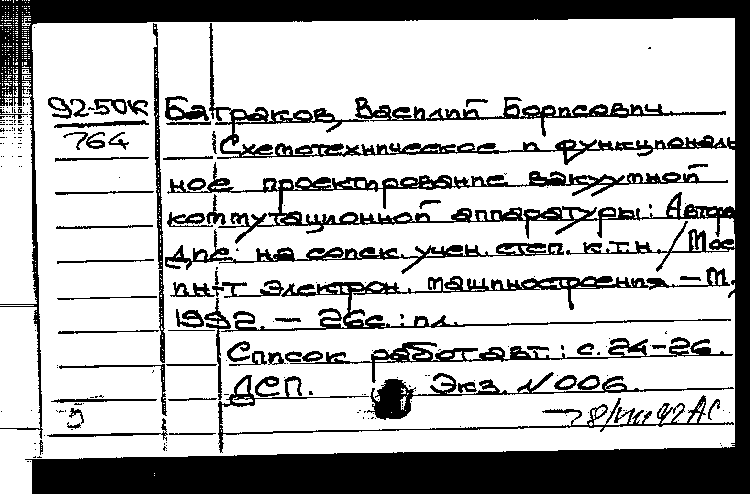 92-50К Батраков, Василий Борисович.
764 Схемотехническое и функциональ
ное проектирование вакуумной
коммутационной аппаратуры: Авторе
дис. на соиск. учен. степ. к.т.н. / Мос
ин-т электрон. машиностроения. – М.,
1992. – 26с.: ил.
Список работ авт.: с. 24-26.
ДСП. Экз. N 006.